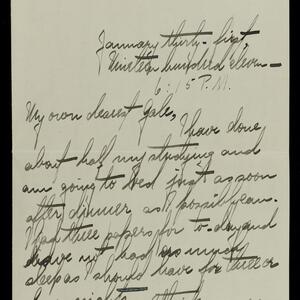 January thirty-first,
Nineteen hundred eleven—
6:15 P.M.
My own dearest Gale,
I have done
about half my studying and
am going to bed just as soon
after dinner as I possibly can.
I had three papers for to-day and
have not had as much
sleep as I should have for three or